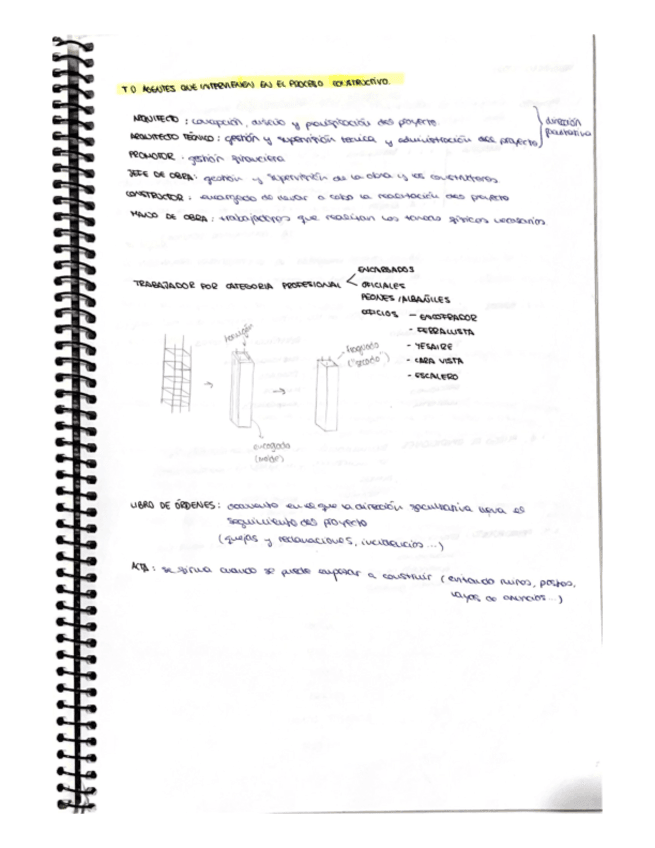 T0 AGENTES QUE INTERVIENEN EN EL PROCESO CONSTRUCTIVO.
ARQUITECTO: concepción, diseño y planificación del proyecto
ARQUITECTO TÉCNICO: gestión y supervisión técnica y administración del proyecto
dirección facultativa
PROMOTOR: gestión financiera
JEFE DE OBRA: gestión y supervisión de la obra y los constructores
CONSTRUCTOR: encargado de llevar a cabo la realización del proyecto
MANO DE OBRA: trabajadores que realizan las tareas físicas necesarias
TRABAJADOR POR CATEGORIA PROFESIONAL
ENCARGADOS
OFICIALES
PEONES / ALBAÑILES
OFICIOS - ENCOFRADOR
- FERRALLISTA
- YESAIRE
- CARA VISTA
- ESCALERO
fraguado
("secado")
(molde)
LIBRO DE ÓRDENES: documento en el que la dirección facultativa lleva el
seguimiento del proyecto
(quejas y reclamaciones, incidencias...)
ACTA: se firma cuando se puede empezar a construir (evitando muros, postes,
vayas de anuncios...)